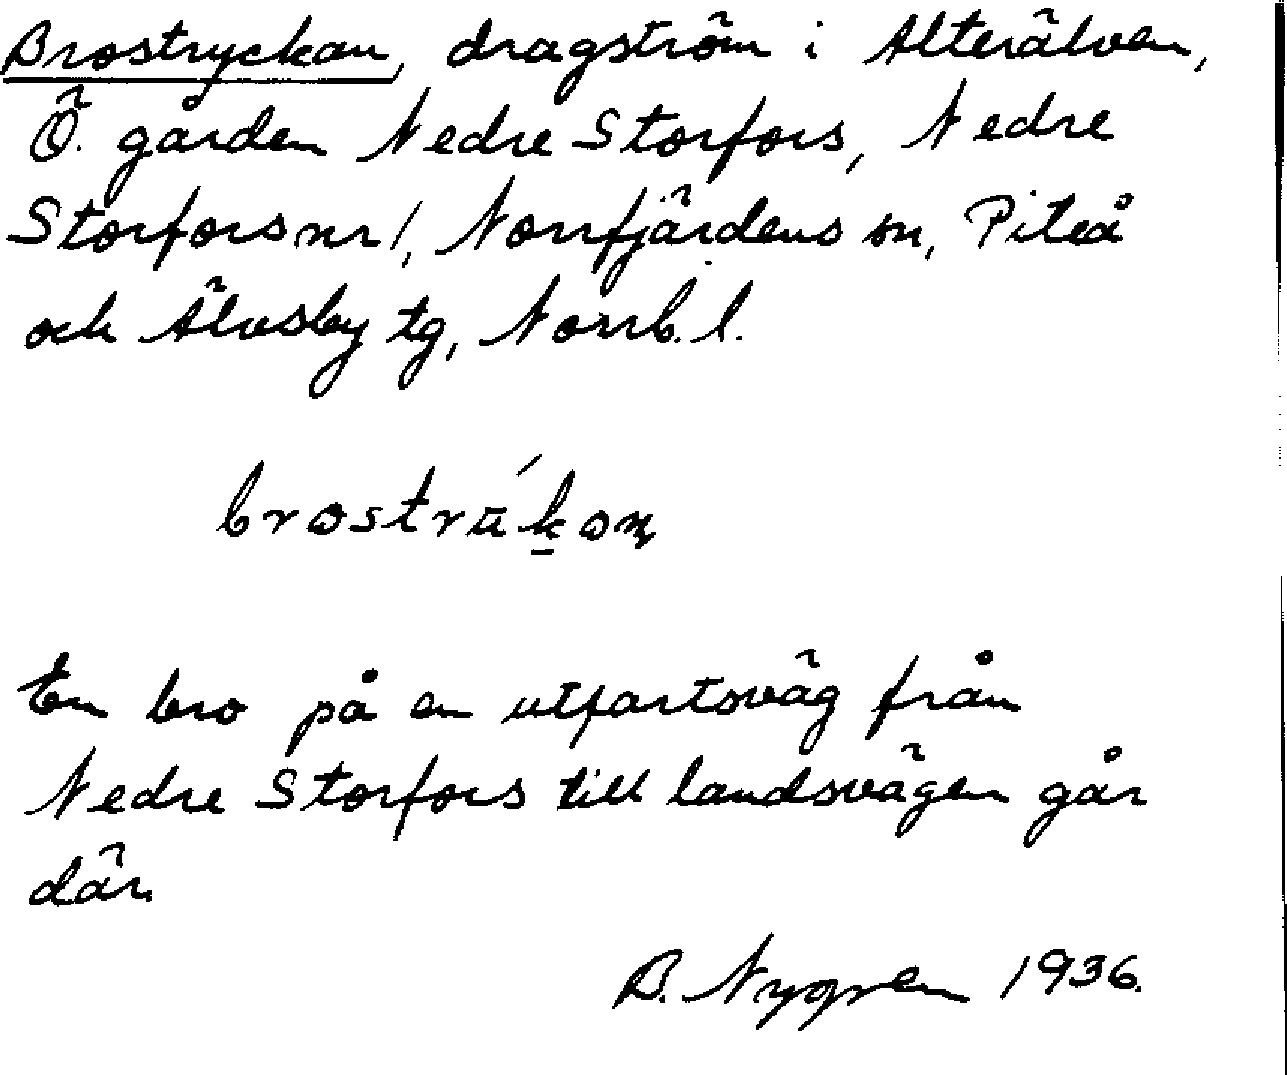 Brostryckan, dragström i Alterälven,
Ö. gården Nedre Storfors, Nedre
Storfors nr 1, Norrfjärdens sn, Piteå
och Älvsby tg, Norrb. l.
brostrukon
En bro på en utfartsväg från
Nedre Storfors till landsvägen går
där.
B. Nygren 1936.